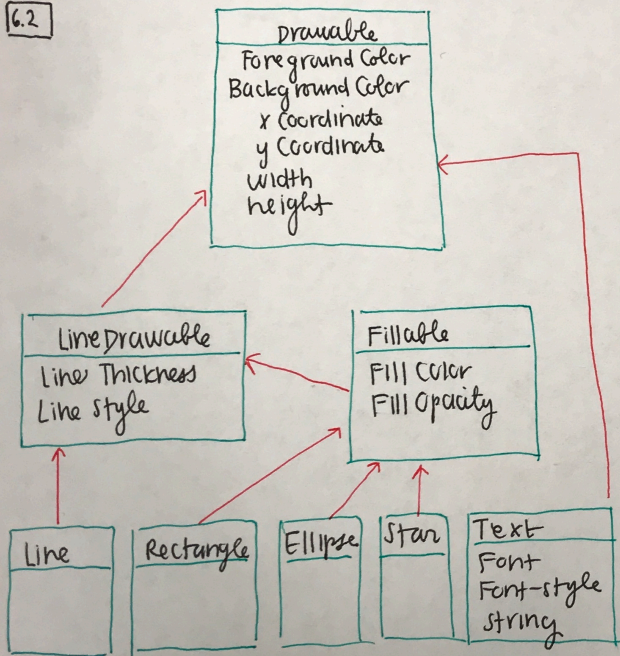 6.2
Drawable
Foreground Color
Background Color
x Coordinate
y Coordinate
width
height
LineDrawable
Line Thickness
Line Style
Fillable
Fill Color
Fill Opacity
Line
Rectangle
Ellipse
Star
Text
Font
Font-style
String